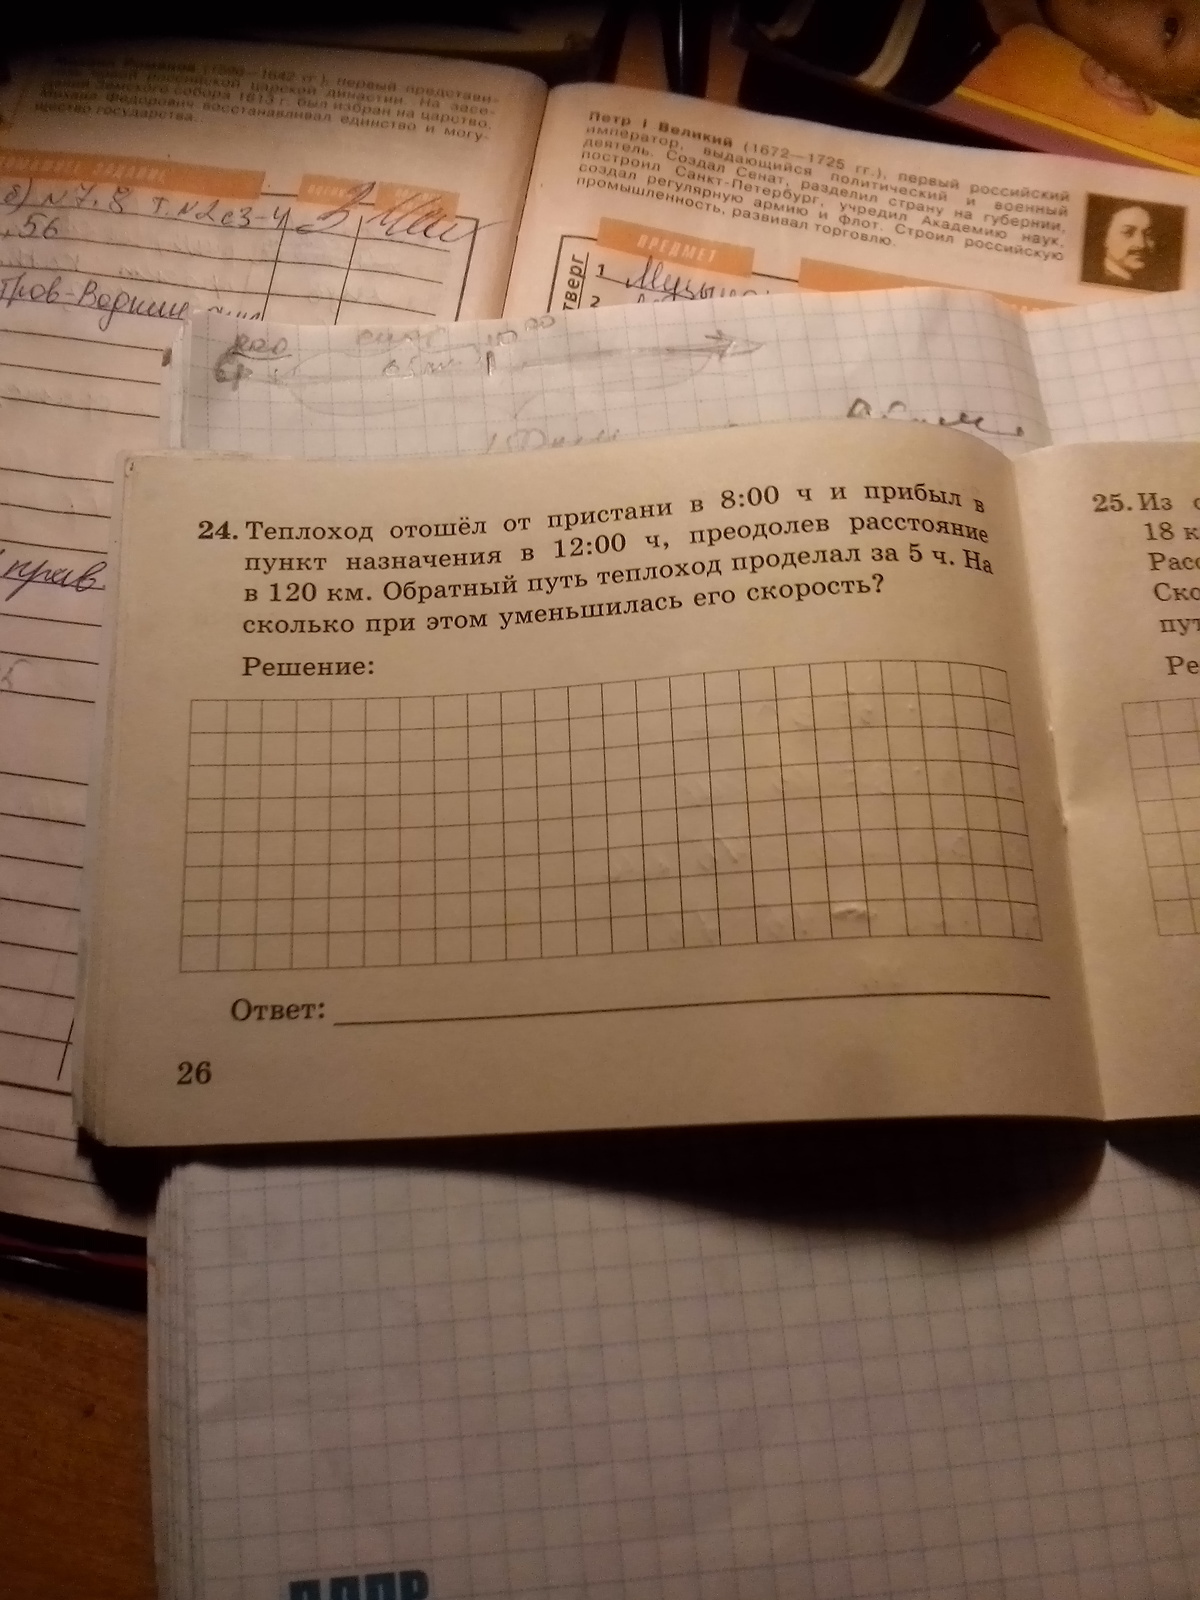 Михаил Романов (1596—1642 гг.), первый представи-
тель новой российской царской династии. На засе-
дании Земского собора 1613 г. был избран на царство.
Михаил Федорович восстанавливал единство и могу-
щество государства.
Петр I Великий (1672—1725 гг.), первый российский
император, выдающийся политический и военный
деятель. Создал Сенат, разделил страну на губернии,
построил Санкт-Петербург, учредил Академию наук,
создал регулярную армию и флот. Строил российскую
промышленность, развивал торговлю.
ПРЕДМЕТ
тверг
1
2
б) N7.8 т.N2 с3-4
56
24. Теплоход отошёл от пристани в 8:00 ч и прибыл в
пункт назначения в 12:00 ч, преодолев расстояние
в 120 км. Обратный путь теплоход проделал за 5 ч. На
сколько при этом уменьшилась его скорость?
Решение:
Ответ:
26
25. Из
18 к
Расс
Ско
пут
Ре
прав